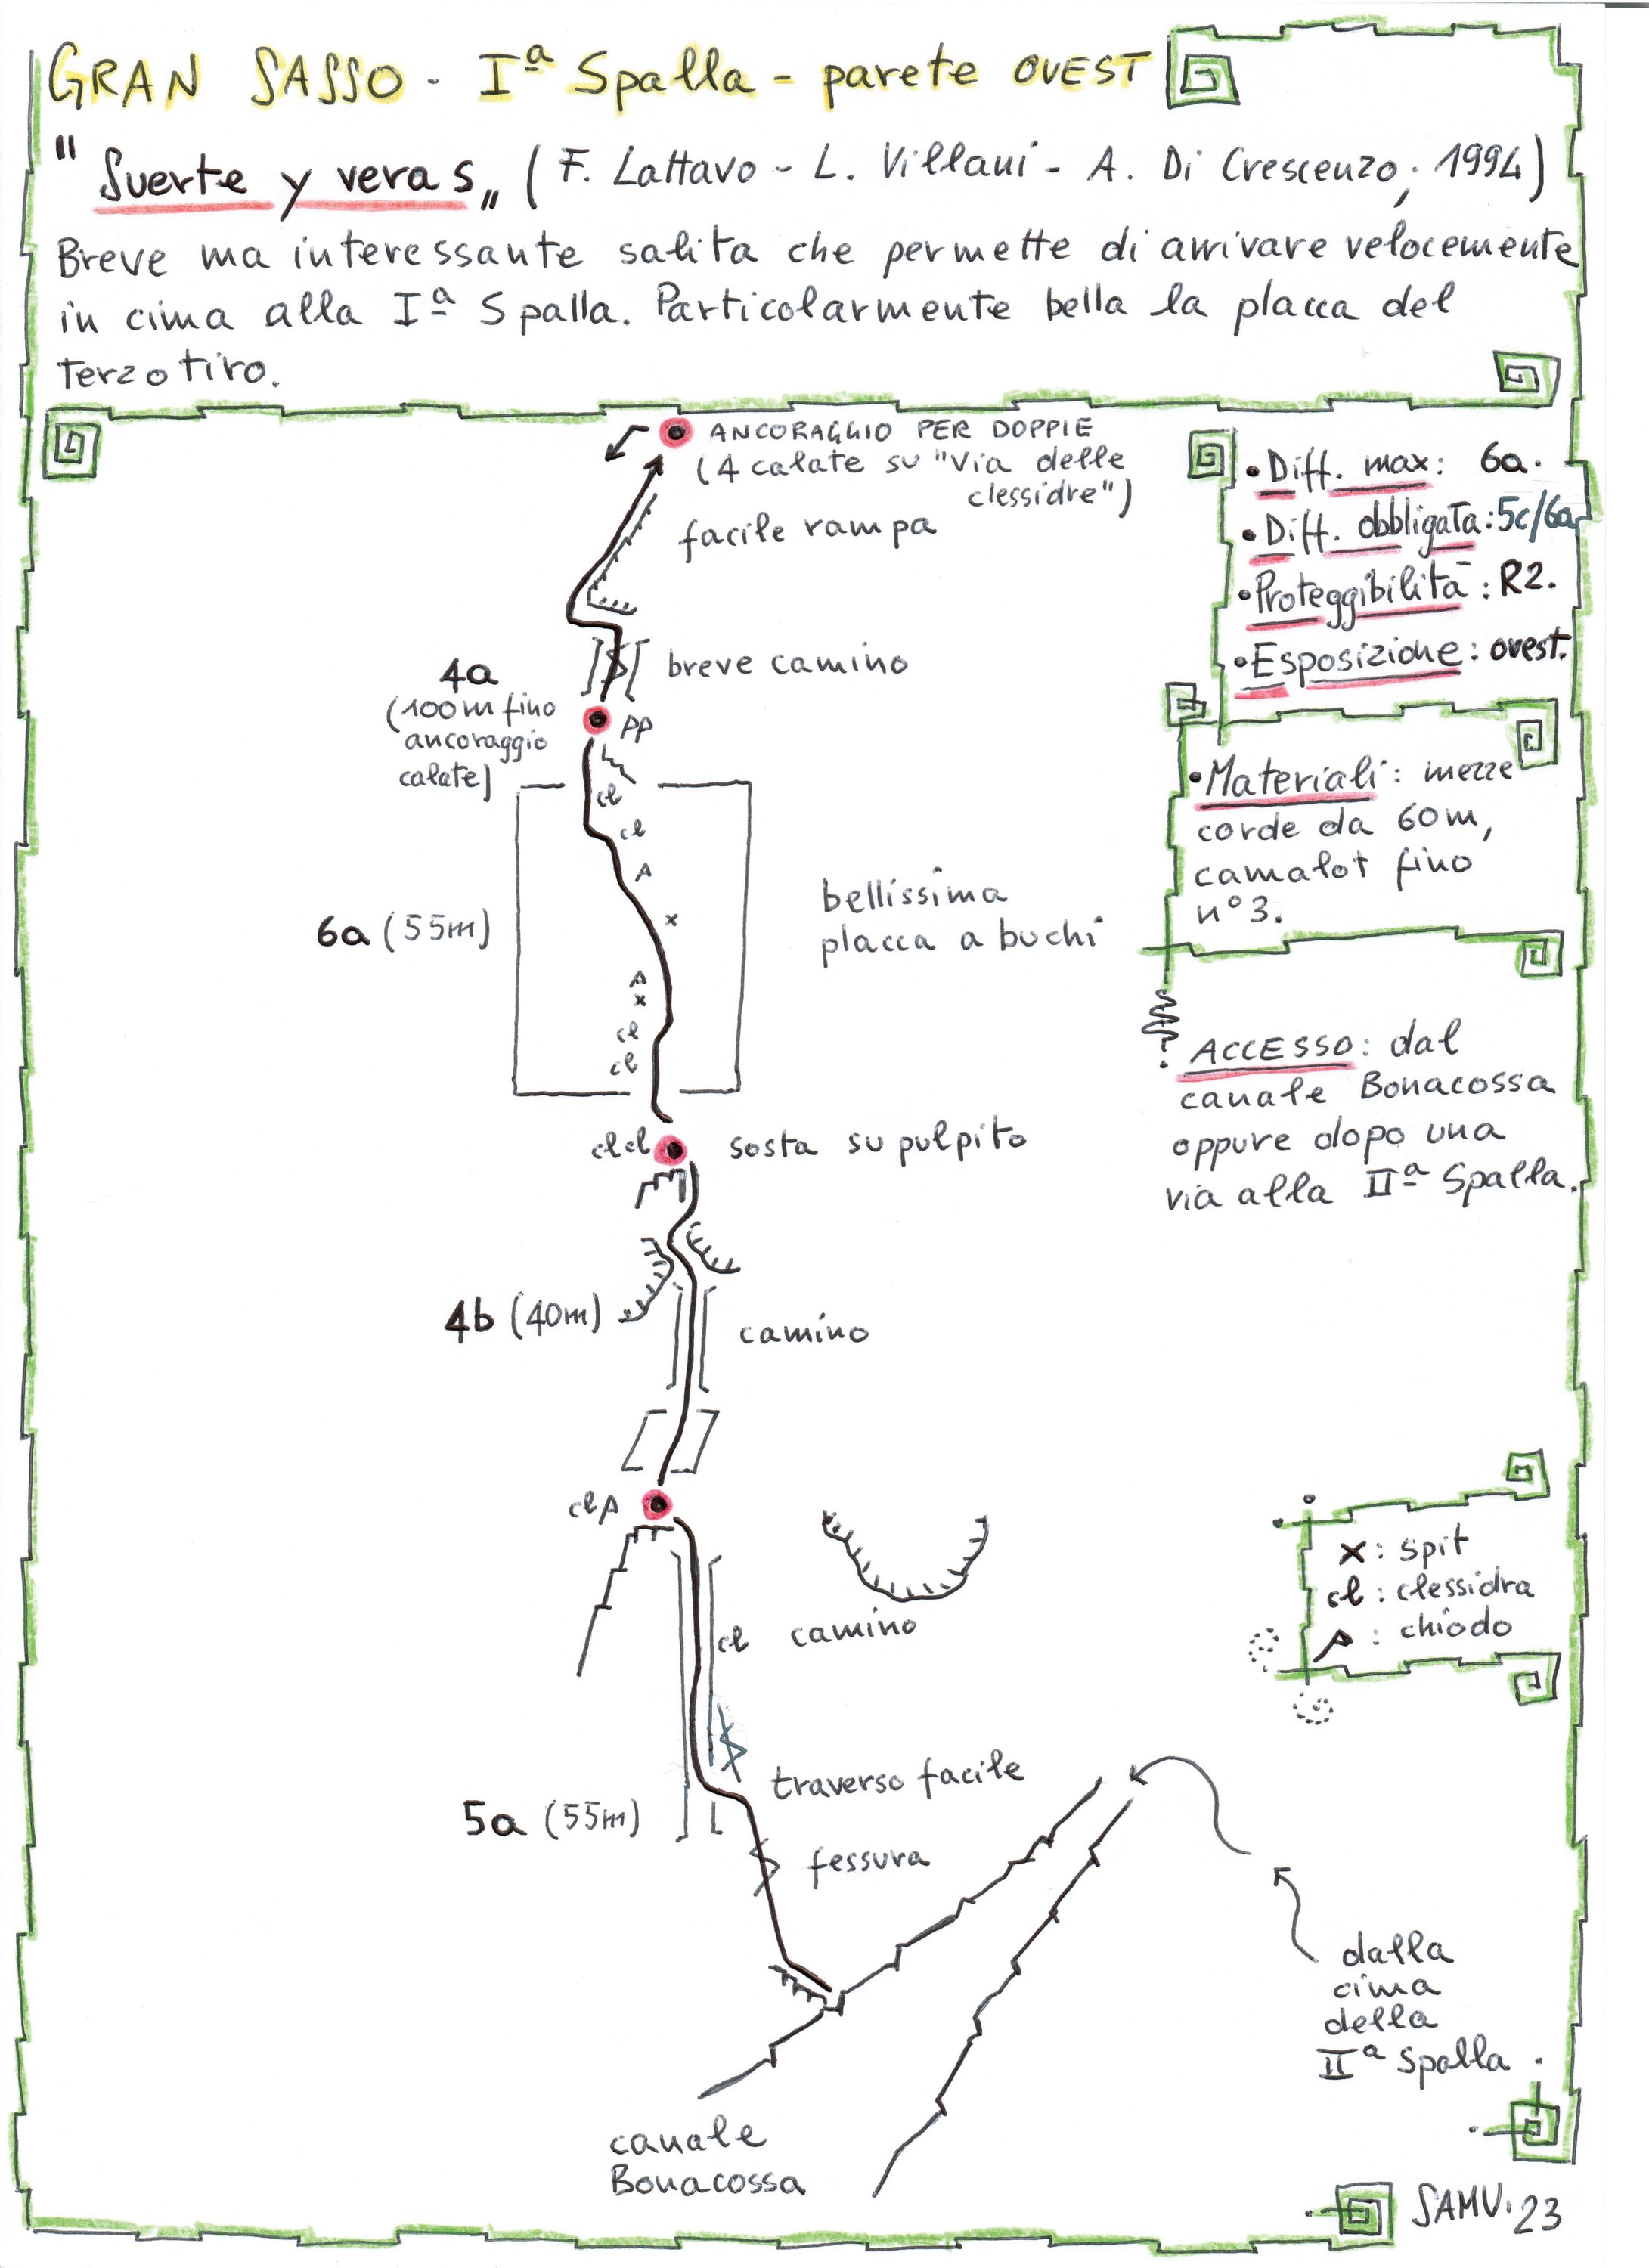 GRAN SASSO - Iª Spalla - parete OVEST
"Suerte y veras" (F. Lattavo - L. Villani - A. Di Crescenzo, 1994)
Breve ma interessante salita che permette di arrivare velocemente
in cima alla Iª Spalla. Particolarmente bella la placca del
terzo tiro.
ANCORAGGIO PER DOPPIE
(4 calate su "Via delle
clessidre")
facile rampa
breve camino
4a
(100m fino
ancoraggio
calate)
PP
cl
cl
P
x
6a (55m)
bellissima
placca a buchi
P
x
cl
cl
cl cl
sosta su pulpito
4b (40m)
camino
cl P
cl camino
traverso facile
5a (55m)
fessura
canale
Bonacossa
dalla
cima
della
IIª Spalla
• Diff. max: 6a.
• Diff. obbligata: 5c/6a
• Proteggibilità: R2.
• Esposizione: ovest.
• Materiali: mezze
corde da 60m,
camalot fino
n°3.
ACCESSO: dal
canale Bonacossa
oppure dopo una
via alla IIª Spalla.
x: spit
cl: clessidra
P: chiodo
SAMU. 23